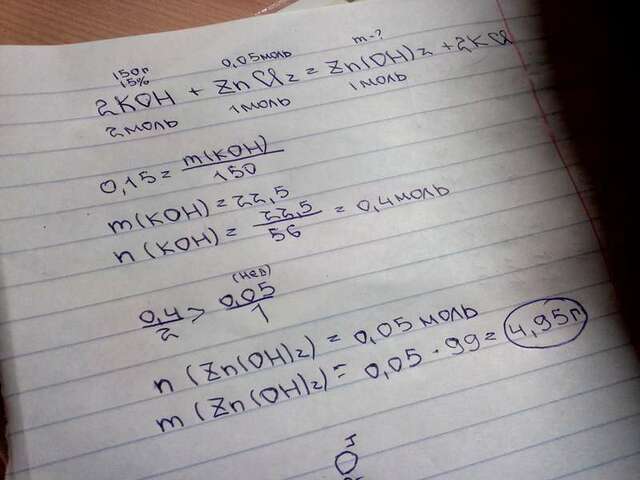 150г 0,05моль m-?
15%
2KOH + ZnCl2 = Zn(OH)2 + 2KCl
2моль 1моль 1моль
0,15 = m(KOH)/150
m(KOH) = 22,5
n(KOH) = 22,5/56 = 0,4моль
(нед)
0,4/2 > 0,05/1
n(Zn(OH)2) = 0,05 моль
m(Zn(OH)2) = 0,05 · 99 = 4,95г